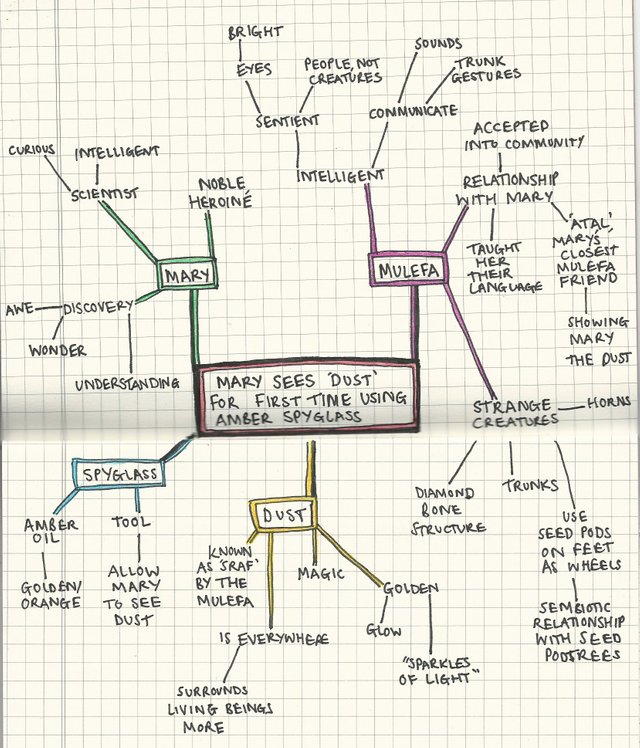 BRIGHT
EYES
PEOPLE, NOT
CREATURES
SENTIENT
SOUNDS
TRUNK
GESTURES
COMMUNICATE
INTELLIGENT
ACCEPTED
INTO COMMUNITY
RELATIONSHIP
WITH MARY
TAUGHT
HER
THEIR
LANGUAGE
'ATAL',
MARY'S
CLOSEST
MULEFA
FRIEND
SHOWING
MARY
THE DUST
MULEFA
CURIOUS
INTELLIGENT
SCIENTIST
NOBLE
HEROINE
MARY
AWE
DISCOVERY
WONDER
UNDERSTANDING
MARY SEES 'DUST'
FOR FIRST TIME USING
AMBER SPYGLASS
STRANGE
CREATURES
HORNS
DIAMOND
BONE
STRUCTURE
TRUNKS
USE
SEED PODS
ON FEET
AS WHEELS
SEMBIOTIC
RELATIONSHIP
WITH SEED
PODTREES
SPYGLASS
AMBER
OIL
GOLDEN/
ORANGE
TOOL
ALLOW
MARY
TO SEE
DUST
DUST
KNOWN
AS 'SRAF'
BY THE
MULEFA
MAGIC
GOLDEN
GLOW
"SPARKLES
OF LIGHT"
IS EVERYWHERE
SURROUNDS
LIVING BEINGS
MORE